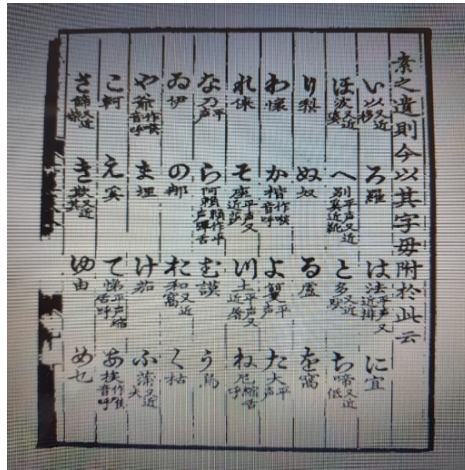 素之遺則今以其字毋附於此云
い以又近移 ろ羅 は法平声又近排 に宜
ほ波又近婆 へ別平声又近靴 と多又近 ち啼又近低
り梨 ぬ奴 る盧 を窩
わ懐 か楷作喉音呼 よ平声 た大平声
れ倈 そ座平声又近莎 川土平声又近屠 ね尼縮舌呼
な乃平声 ら阿頼頼作平声弾舌 む謨 う烏
ゐ伊 の那 お和又近窩 く枯
や爺作喉音呼 ま埋 け茄 ふ蒲又近夫
こ軻 え奚 て悌平声縮舌呼 あ挨作喉音呼
さ篩又近柴 き欺又近其 ゆ由 め乜